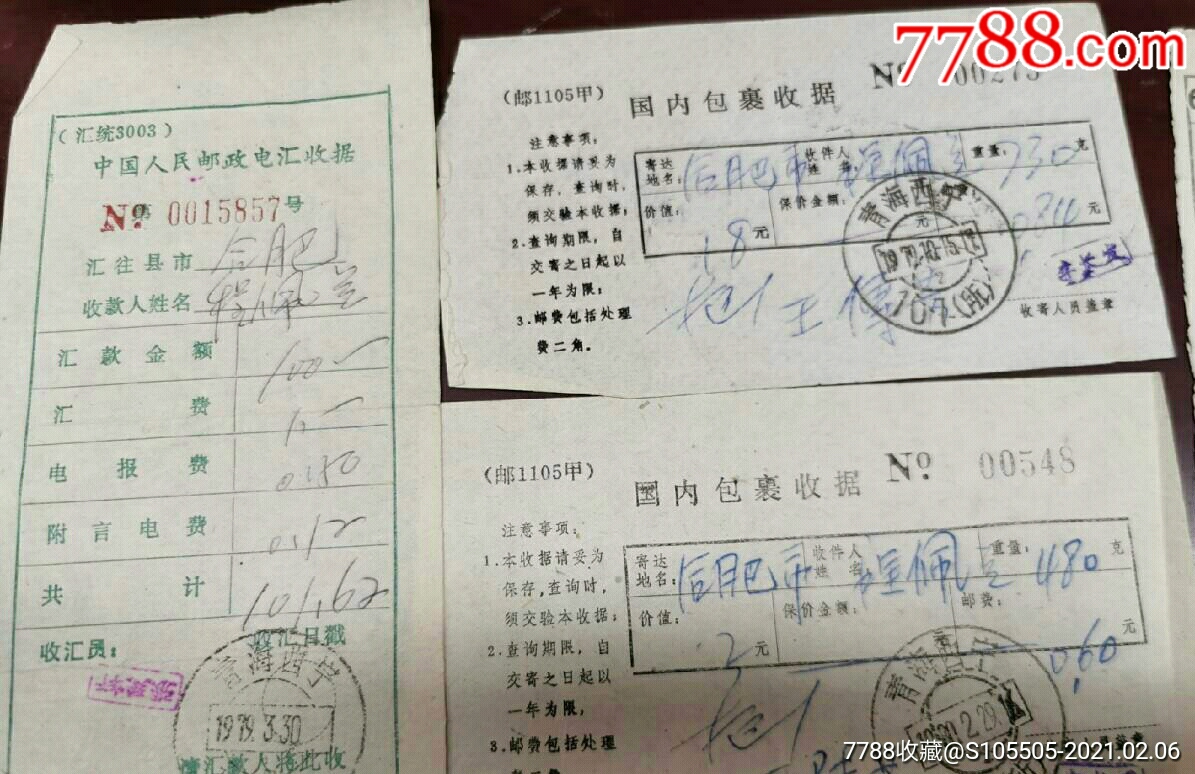 7788.com
（汇统3003）
中国人民邮政电汇收据
No 0015857号
汇往县市 合肥
收款人姓名 程佩兰
汇款金额 100—
汇费 1.—
电报费 0.50
附言电费 0.12
共计 101.62
收汇员：
收汇日戳
青海西宁
1979.3.30
请汇款人将此收
（邮1105甲）
国内包裹收据
No 00275
注意事项：
1.本收据请妥为
保存，查询时，
须交验本收据；
2.查询期限，自
交寄之日起以
一年为限；
3.邮费包括处理
费二角。
寄达地名： 合肥市
收件人姓名 程佩兰
重量： 730克
价值： 18元
保价金额： 元
元
青海西宁
收寄人员盖章
（邮1105甲）
国内包裹收据
No 00548
注意事项：
1.本收据请妥为
保存，查询时，
须交验本收据；
2.查询期限，自
交寄之日起以
一年为限，
3.邮费包括处理
寄达地名： 合肥市
收件人姓名 程佩兰
重量： 480克
价值： 2元
保价金额：
邮费： 0.60元
7788收藏@S105505-2021.02.06